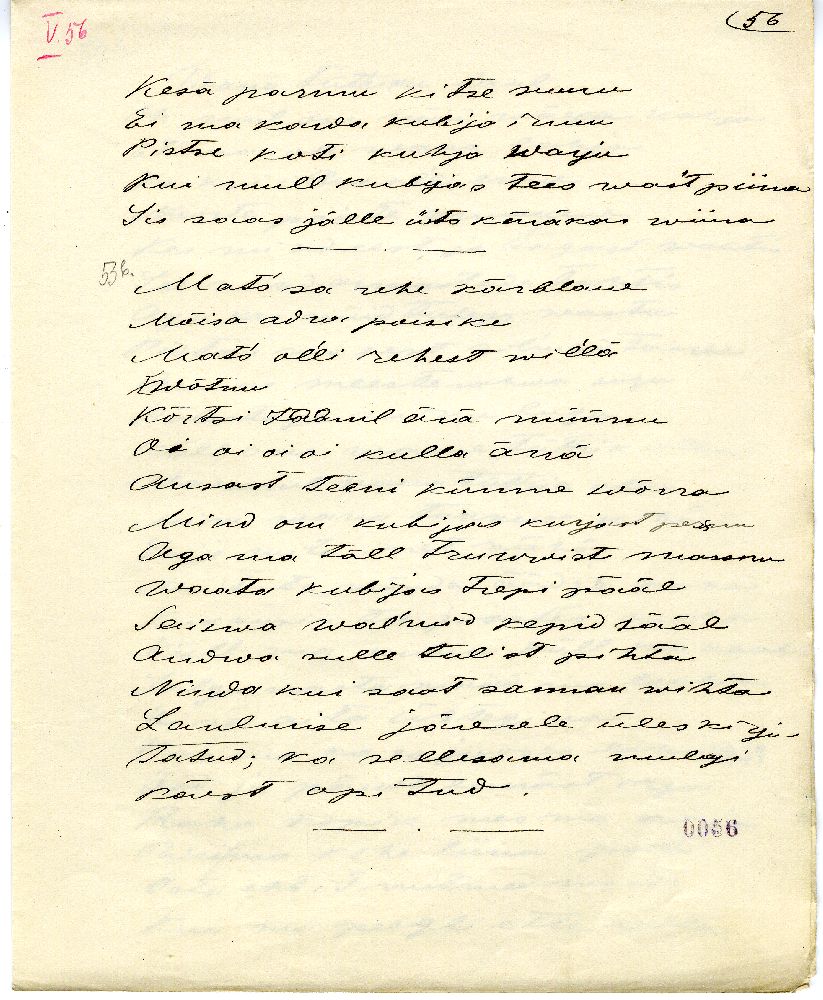 V. 56
56
Kesä parmu kitse suuru
Ei ma karda kubija irmu
Pistse koti kuhja warju
Kui mull kubijas tees wast piina
Sis saas jälle üts käräkas wiina
53b.
Mats sa rehe kärblane
Mõisa adra poisike
Mats olli rehest willä
wõtnu
Kõrtsi Jaanil ärä müünu
Oi oi oi oi kulla ärrä
Ausast teeni künne wõrra
Mind om kubijas kurjast pesnu
Aga ma täll truuwwist masnu
Waata kubijas trepi pääl
Seiswa walmid kepid sääl
Andwa sulle tulist pihta
Ninda kui saat sannan wihta
Laulmise järele üleskirju-
tatud; ka sellesama mulgi
käest opitud.
0056